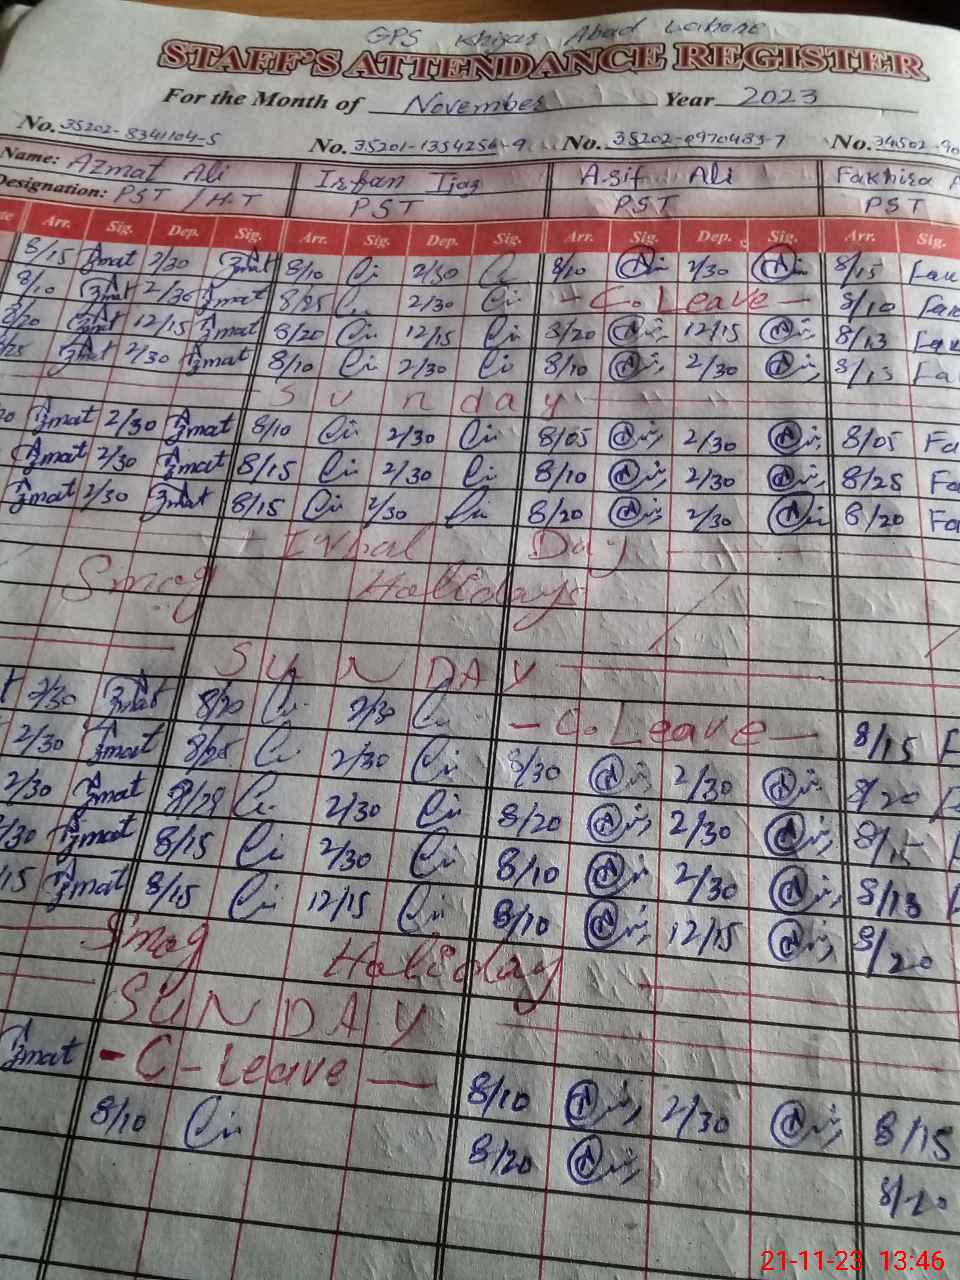 GPS Khizar Abad Lahore
STAFF'S ATTENDANCE REGISTER
For the Month of November Year 2023
No. 35202-8341104-5 No. 35201-1354254-9 No. 35202-0970483-7 No. 34502-90
Name: Azmat Ali Irfan Ijaz Asif Ali Fakhira A
Designation: PST / H.T PST PST PST
Arr. Sig. Dep. Sig. Arr. Sig. Dep. Sig. Arr. Sig. Dep. Sig. Arr. Sig.
8/15 Azmat 2/30 Azmat 8/10 2/30 8/10 2/30 8/15 Fak
8/10 Azmat 2/30 Azmat 8/25 2/30 - C. Leave - 8/10 Fak
8/20 Azmat 12/15 Azmat 8/20 12/15 8/20 12/15 8/13 Fak
8/25 Azmat 2/30 Azmat 8/10 2/30 8/10 2/30 8/13 Fa
Sunday
Azmat 2/30 Azmat 8/10 2/30 8/05 2/30 8/05 Fa
Azmat 2/30 Azmat 8/15 2/30 8/10 2/30 8/25 Fa
Azmat 2/30 Azmat 8/15 2/30 8/20 2/30 8/20 Fa
Iqbal Day
Smog Holidays
SUNDAY
2/30 Azmat 8/20 2/30 - C. Leave - 8/15 F
2/30 Azmat 8/25 2/30 8/30 2/30 8/20
2/30 Azmat 2/30 8/20 2/30
Azmat 8/15 2/30 8/10 2/30 8/13
Azmat 8/15 12/15 8/10 12/15 8/20
Smog Holiday
SUNDAY
Azmat - C - Leave - 8/10 2/30 8/15
8/10 8/20 8/20
21-11-23 13:46